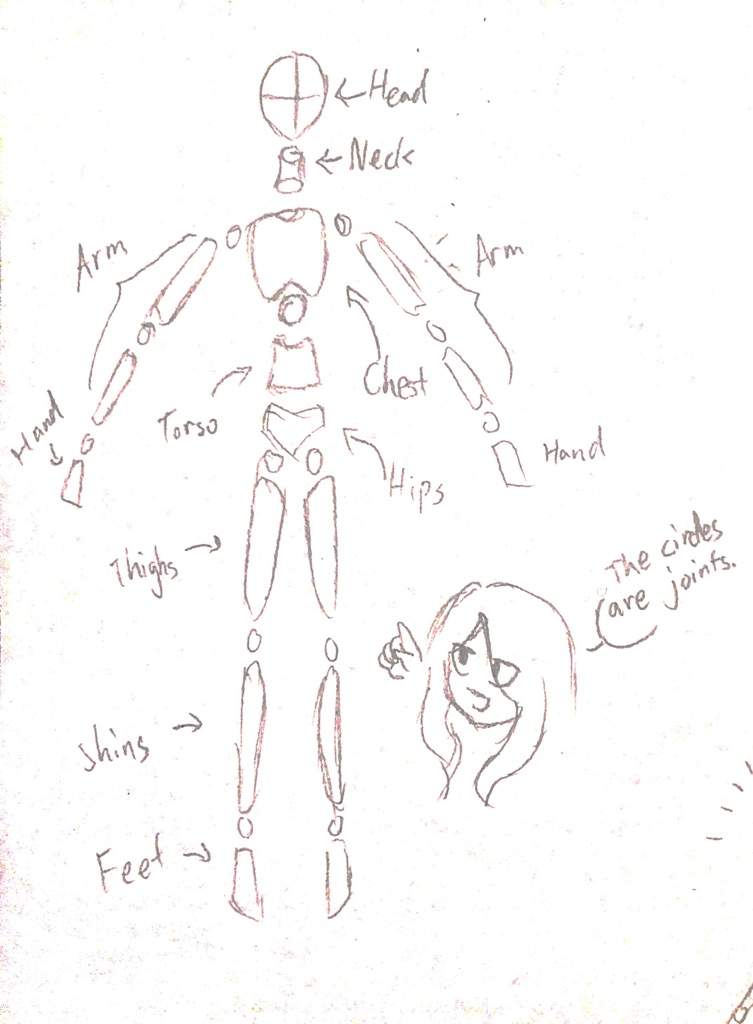 Head
Neck
Arm
Arm
Chest
Torso
Hand
Hand
Hips
Thighs
The circles
are joints.
Shins
Feet